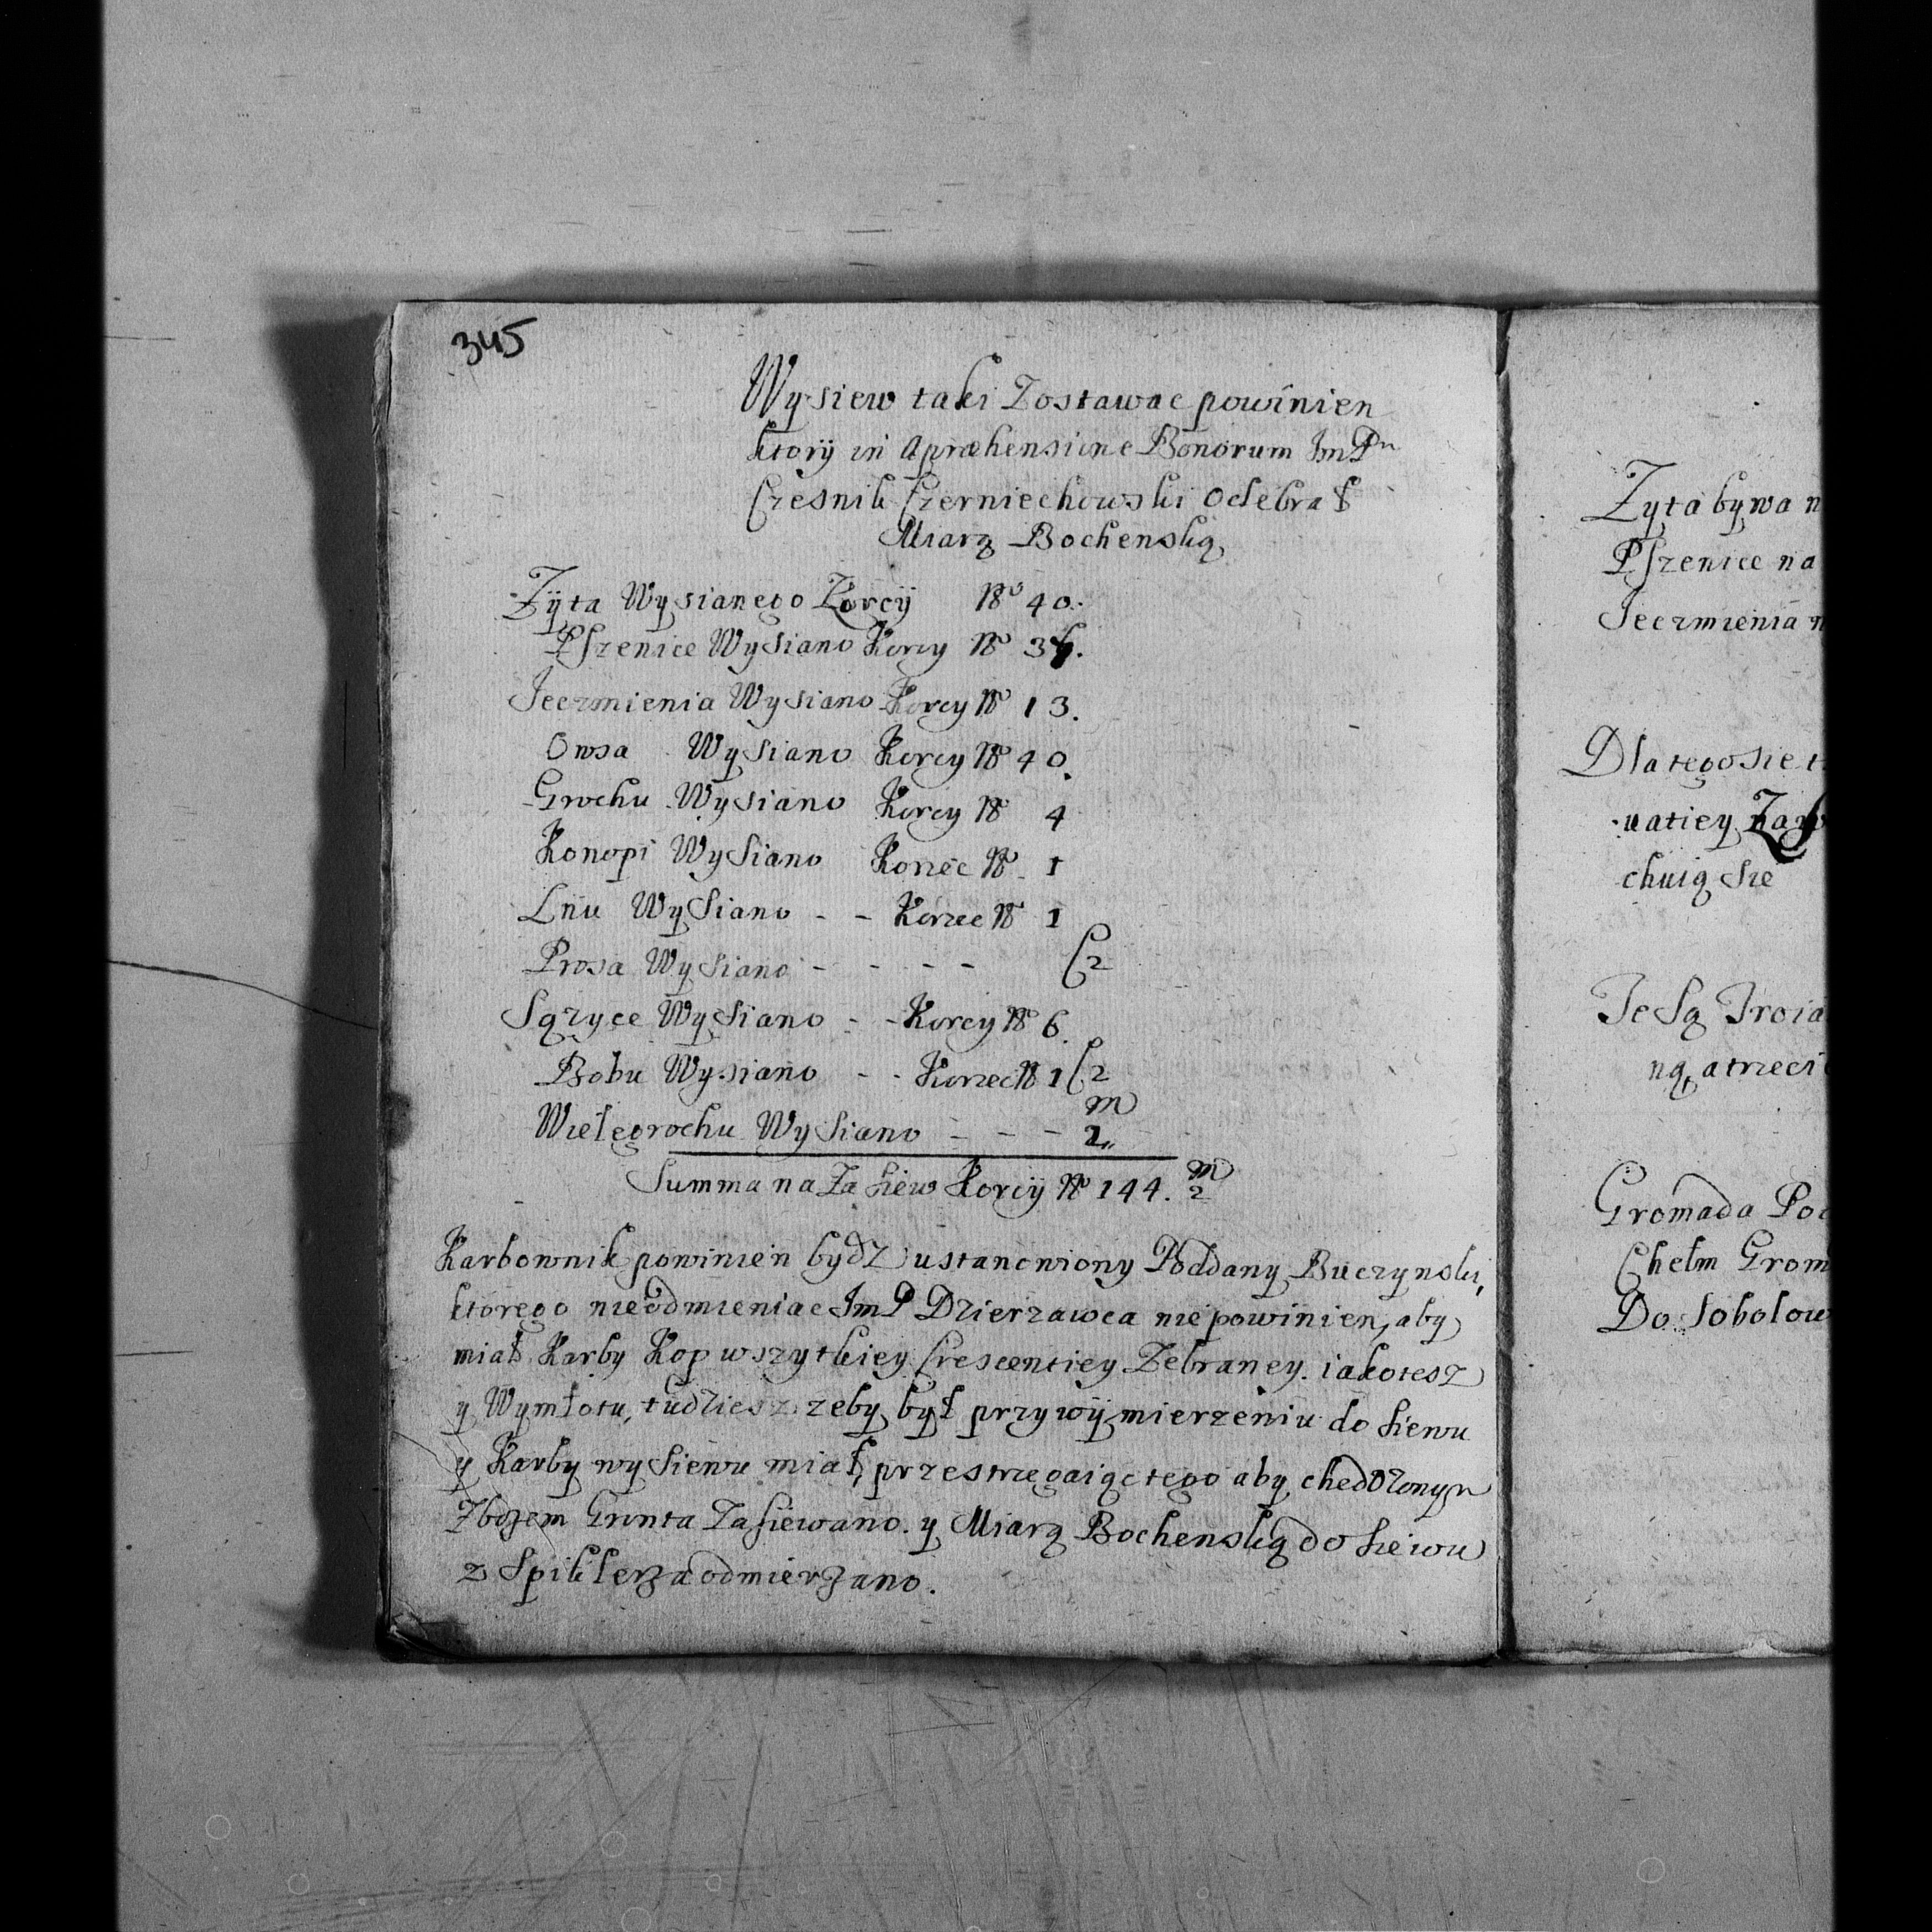 345
Wysiew taki Zostawac powinien
ktorÿ in Apræhensione Bonorum ImPn
Czesnik Czerniechowski Odebrał
Miarą Bochenską
Zÿta Wysianego Korcÿ No 40.
Pszenice Wysiano Korcy No 36.
Jeczmienia Wysiano Korcy No 13.
Owsa Wysiano Korcy No 40.
Grochu Wysiano Korcy No 4
Konopi Wysiano Korzec No 1
Lnu Wysiano - - Korzec No 1
Prosa Wysiano - - - - C2
Sążyce Wysiano - - Korcy No 6.
Bobu Wysiano - - Korzec No 1 C2
m
Wielgrochu Wysiano - - - 2
Summa na Zasiew Korcÿ No 144. m2
Karbownik powinien bydz ustanowiony Poddany Buczynski,
ktorego nieodmieniac ImP Dzierzawca nie powinien, aby
miał Karby Kop wszytkiey Crescentiey Zebraney. iakotesz
y Wymłotu, tudziesz zeby był przy wÿmierzeniu do siewu
y Karby wysiewu miał, przestrzegaiąc tego aby chedozonym
Zbozem Grunta Zasiewano. y Miarą Bochenską do siewu
z Spiklerza odmierzano.
Zyta bywa n
Pszenice na
Jeczmienia n
Dlatego sie
uatiey
chuią sie
Je Są Troia
ną, a trzeci
Gromada
Chelm Grom
Do Sobolow